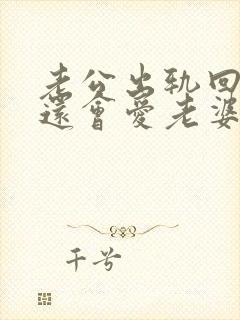 老公出轨回
還會愛老婆
千兮